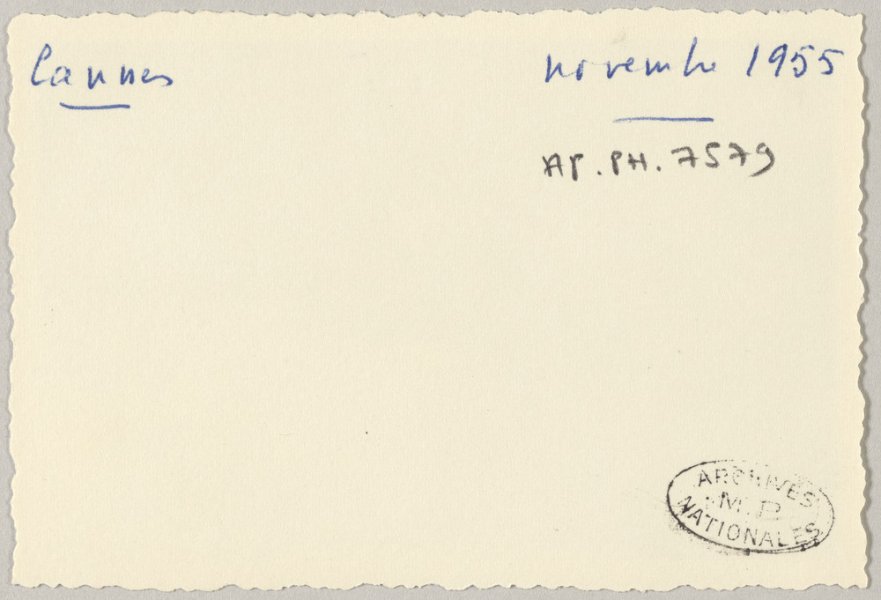 Cannes
novembre 1955
AP.PH.7579
ARCHIVES
M.P
NATIONALES